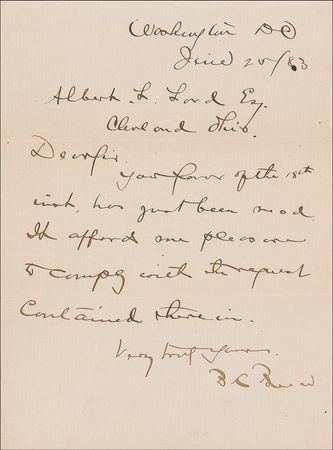 Washington DC
June 25/83
Albert L. Lord Esq.
Cleveland Ohio.
Dear Sir.
Your favor of the 18th
inst, has just been read.
It affords me pleasure
to comply with the request
contained therein.
Very truly yours
B C